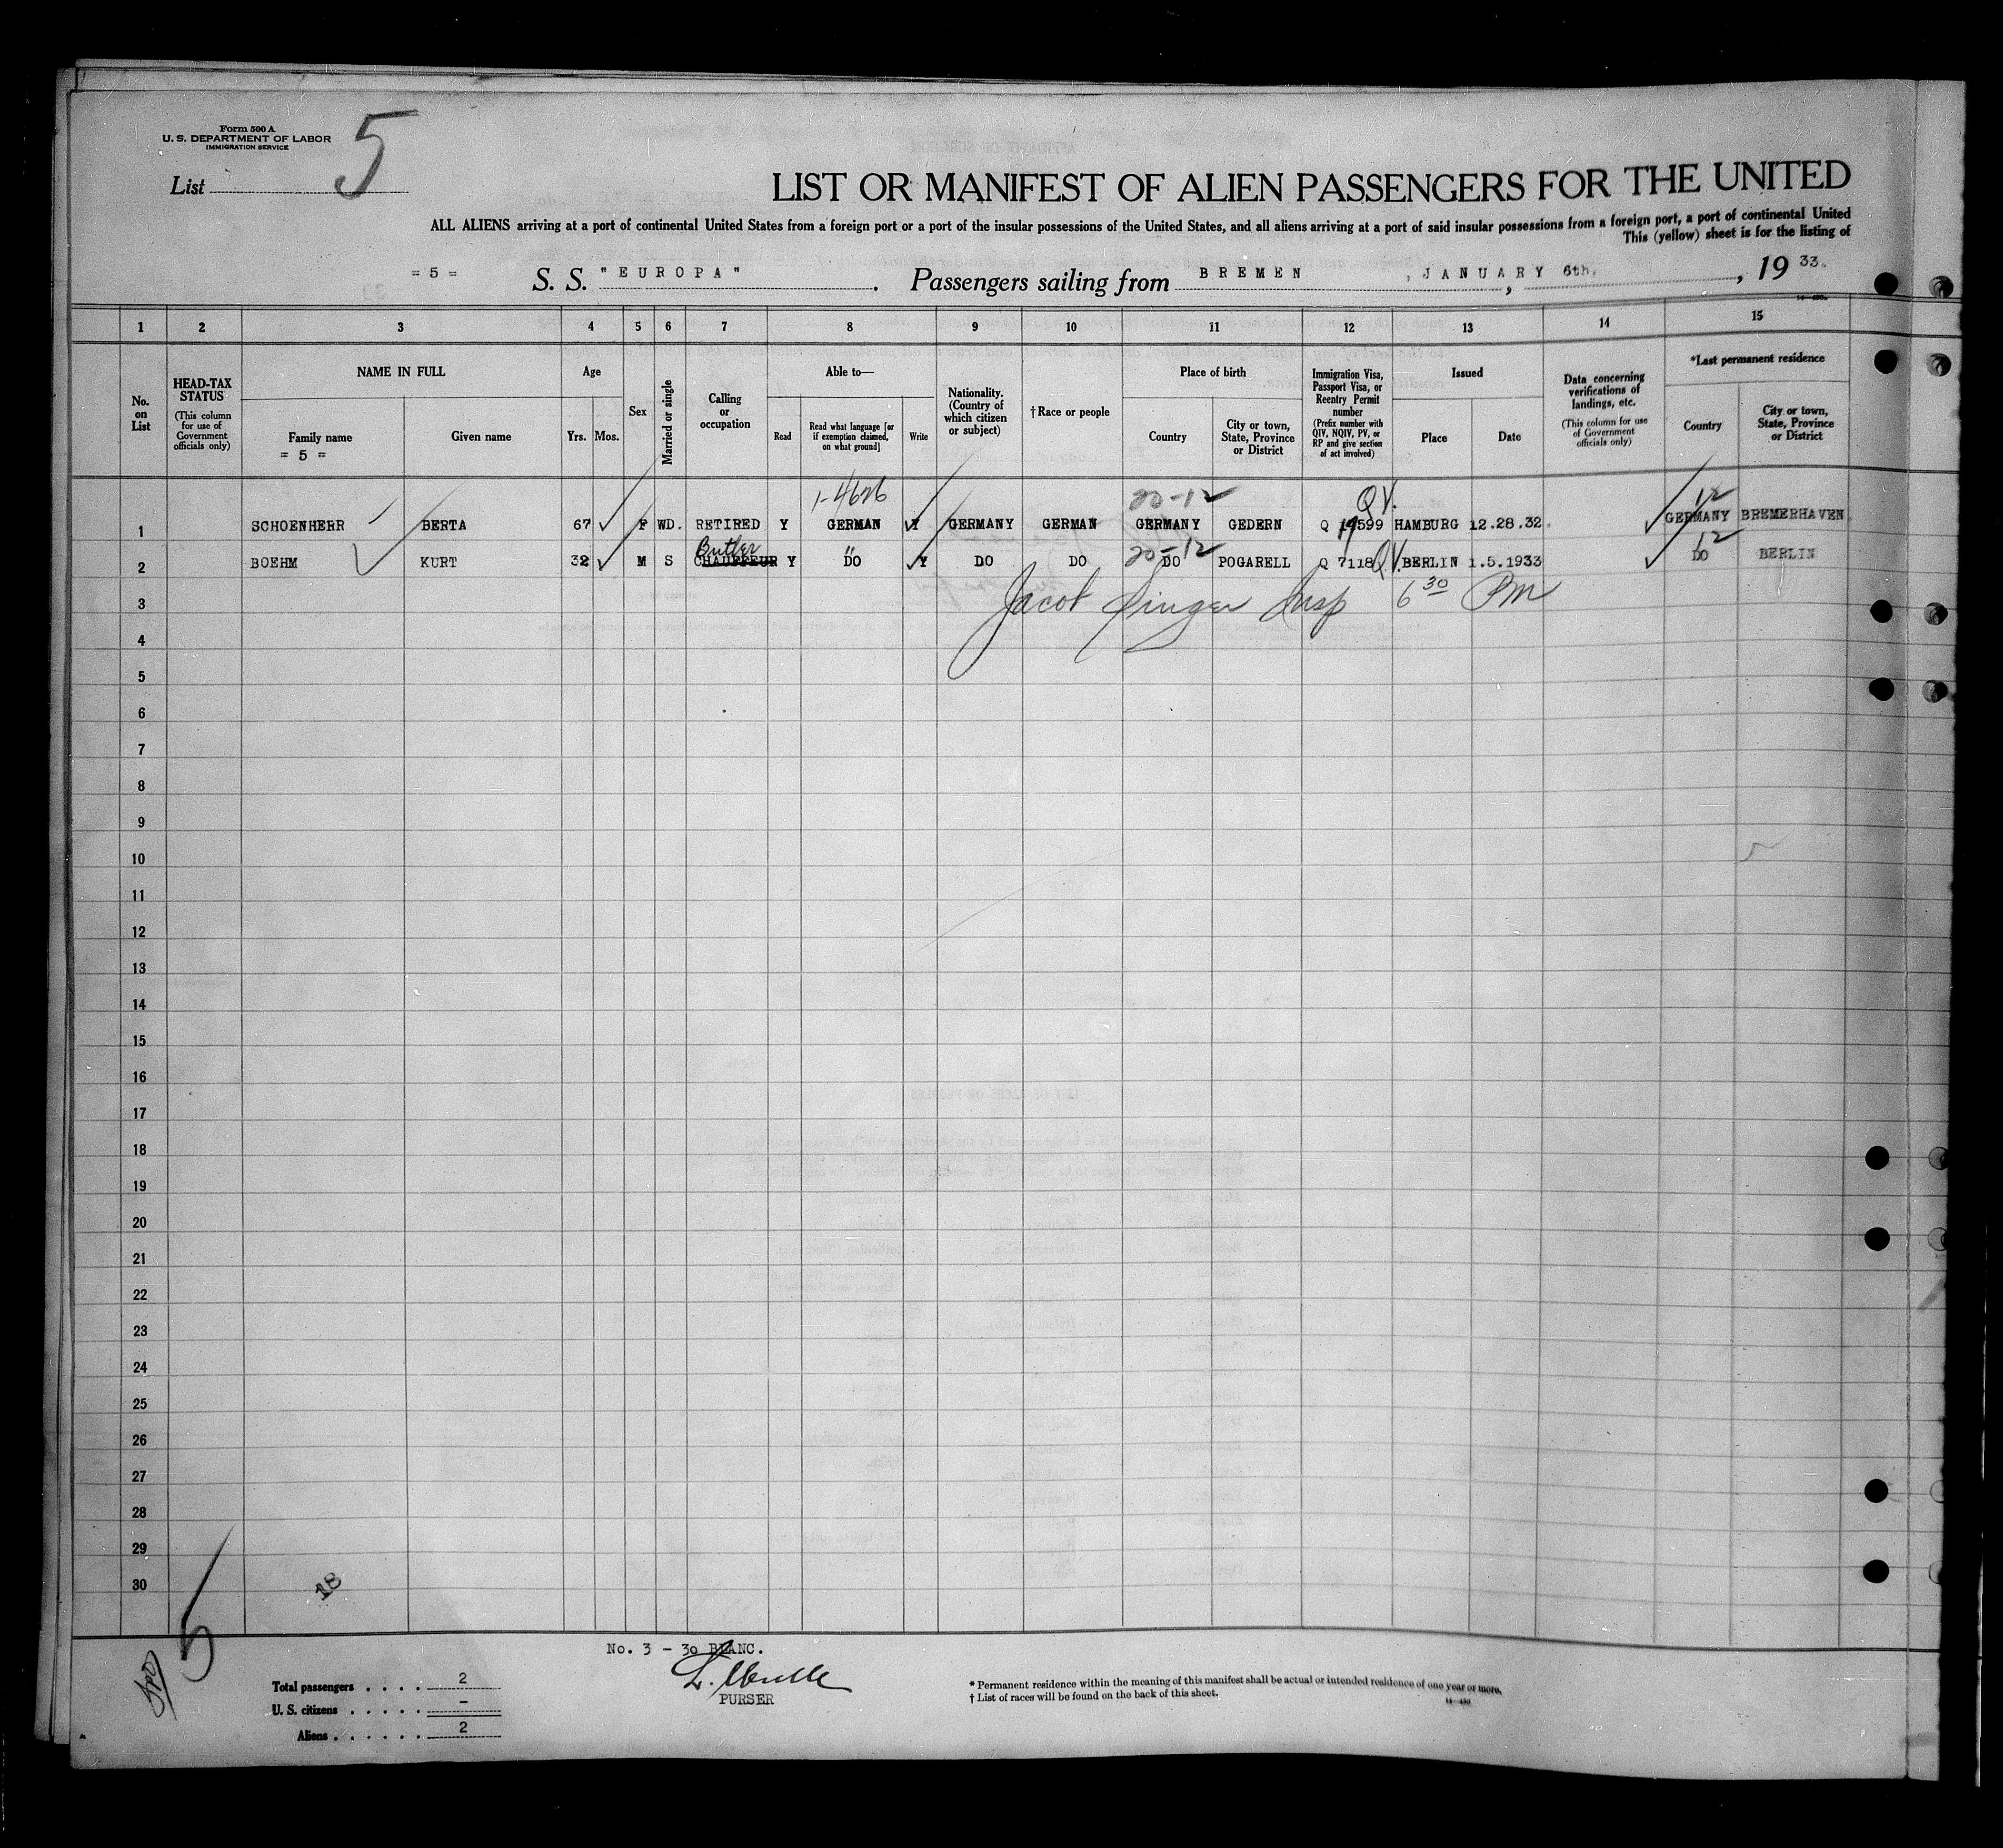 Form 500 A
U. S. DEPARTMENT OF LABOR
IMMIGRATION SERVICE
List 5
LIST OR MANIFEST OF ALIEN PASSENGERS FOR THE UNITED
ALL ALIENS arriving at a port of continental United States from a foreign port or a port of the insular possessions of the United States, and all aliens arriving at a port of said insular possessions from a foreign port, a port of continental United
This (yellow) sheet is for the listing of
= 5 = S. S. "EUROPA". Passengers sailing from BREMEN, JANUARY 6th, 1933.
1 2 3 4 5 6 7 8 9 10 11 12 13 14 15
No. on List
HEAD-TAX STATUS (This column for use of Government officials only)
NAME IN FULL
Family name
= 5 =
Given name
Age
Yrs. Mos.
Sex
Married or single
Calling or occupation
Able to—
Read
Read what language [or if exemption claimed, on what ground]
Write
Nationality. (Country of which citizen or subject)
† Race or people
Place of birth
Country
City or town, State, Province or District
Immigration Visa, Passport Visa, or Reentry Permit number (Prefix number with QIV, NQIV, PV, or RP and give section of act involved)
Issued
Place
Date
Data concerning verifications of landings, etc. (This column for use of Government officials only)
*Last permanent residence
Country
City or town, State, Province or District
1-4626 20-12 QV. 12
1 SCHOENHERR BERTA 67 F WD. RETIRED Y GERMAN Y GERMANY GERMAN GERMANY GEDERN Q 599 HAMBURG 12.28.32. GERMANY BREMERHAVEN
Butler " 20-12 12
2 BOEHM KURT 32 M S CHAUFFEUR Y DO Y DO DO DO POGARELL Q 7118 QV. BERLIN 1.5.1933 DO BERLIN
Jacob Singer Insp 6 30 PM
3
4
5
6
7
8
9
10
11
12
13
14
15
16
17
18
19
20
21
22
23
24
25
26
27
28
29
30
18
5
No. 3 - 30 BLANC.
PURSER
Total passengers . . . . 2
U. S. citizens . . . . . -
Aliens . . . . . . 2
* Permanent residence within the meaning of this manifest shall be actual or intended residence of one year or more.
† List of races will be found on the back of this sheet.